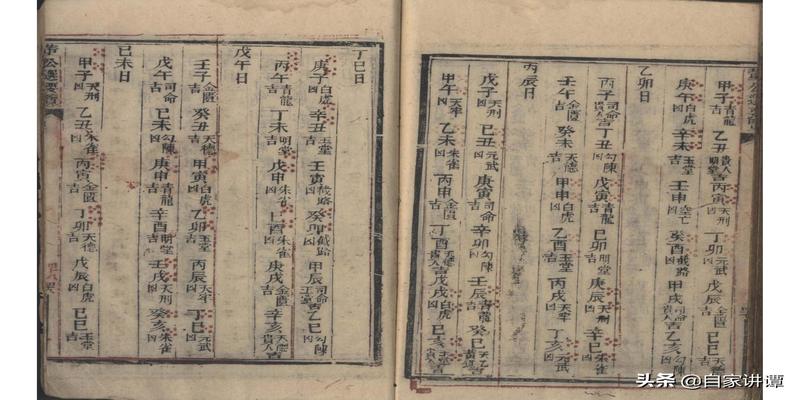 甲子青龍 乙丑貴人明堂吉 丙寅天刑 丁卯元武凶 戊辰金匱 己巳
庚午白虎凶 辛未玉堂吉 壬申空亡凶 癸酉截路凶 甲戌 乙亥
乙卯日
丙子司命 丁丑勾陳凶 戊寅青龍吉 己卯明堂吉 庚辰天刑凶 辛巳朱雀凶
壬午金匱吉 癸未天德吉 甲申白虎凶 乙酉玉堂吉 丙戌天牢凶 丁亥元武凶
丙辰日
戊子天牢凶 己丑元武凶 庚寅司命吉 辛卯勾陳凶 壬辰青龍吉 癸巳
甲午凶 乙未朱雀凶 丙申金匱吉 丁酉貴人吉 戊戌白虎凶 己亥貴人吉
丁巳日
庚子白虎凶 辛丑玉堂吉 壬寅截路凶 癸卯截路凶 甲辰司命吉 乙巳勾陳凶
丙午青龍吉 丁未明堂吉 戊申朱雀凶 己酉朱雀凶 庚戌金匱吉 辛亥天德貴人吉
戊午日
壬子金匱吉 癸丑天德吉 甲寅白虎凶 乙卯玉堂吉 丙辰天牢凶 丁巳元武凶
戊午司命吉 己未勾陳凶 庚申青龍吉 辛酉明堂吉 壬戌天刑凶 癸亥朱雀凶
己未日
甲子天刑凶 乙丑朱雀凶 丙寅金匱吉 丁卯天德吉 戊辰白虎凶 己巳玉堂吉
公選要覽
头条 @自家讲谭